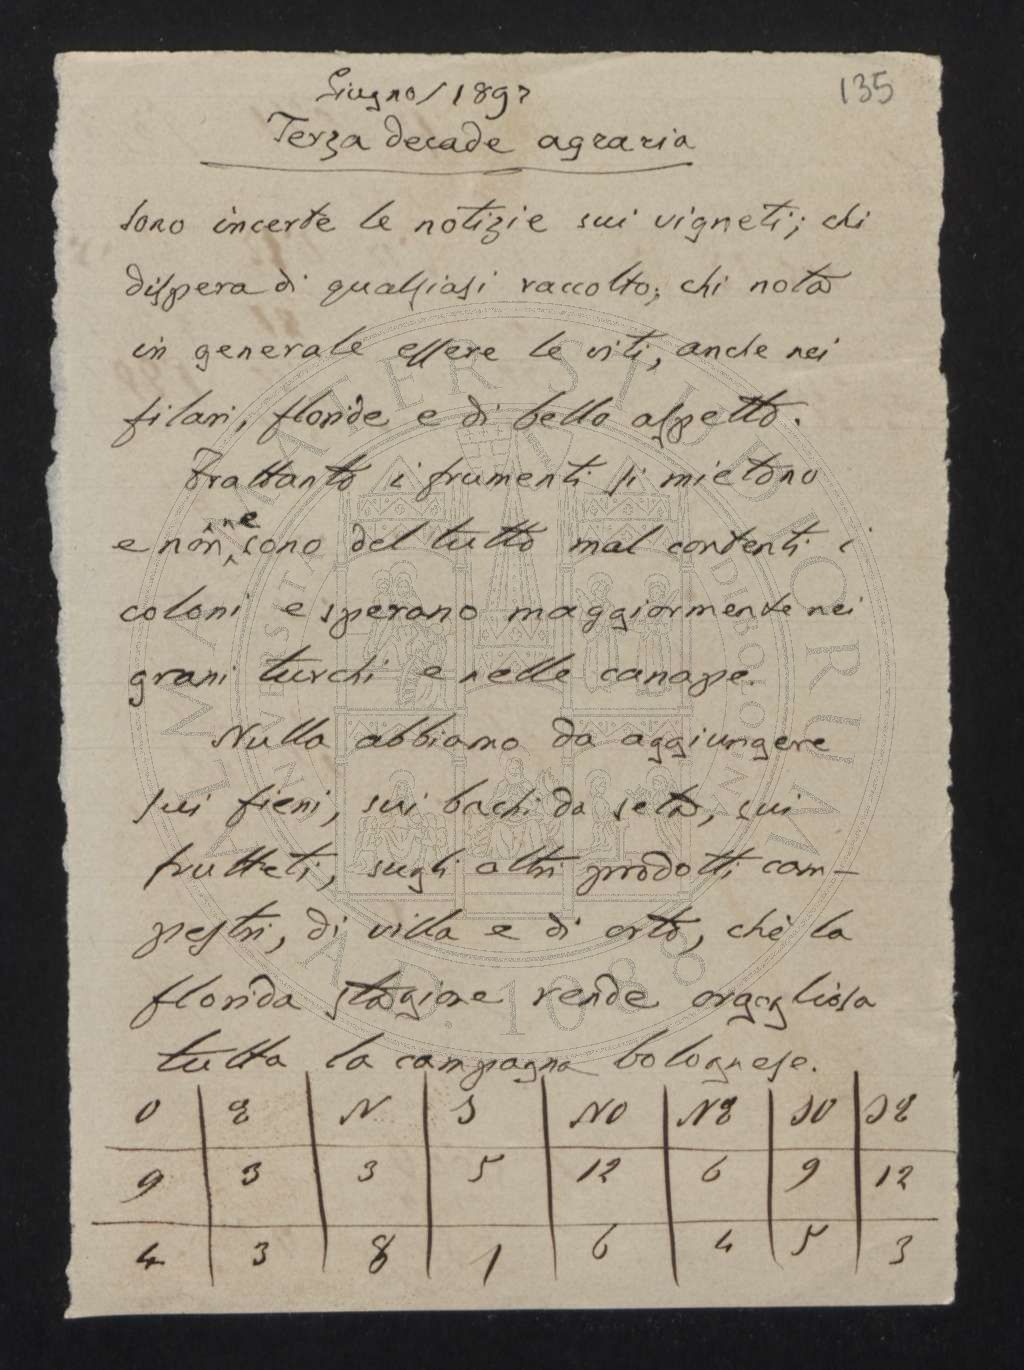 135
Giugno / 1897
Terza decade agraria
sono incerte le notizie sui vigneti; chi
dispera di qualsiasi raccolto; chi nota
in generale essere le viti, anche nei
filari, floride e di bello aspetto.
Frattanto i frumenti si mietono
e non ne sono del tutto mal contenti i
coloni e sperano maggiormente nei
grani turchi e nelle canape.
Nulla abbiamo da aggiungere
sui fieni, sui bachi da seta, sui
frutteti, sugli altri prodotti cam-
pestri, di villa e di orto, chè la
florida stagione rende orgogliosa
tutta la campagna bolognese.
O E N S NO NE SO SE
9 3 3 5 12 6 9 12
4 3 8 1 6 4 5 3
ALMA MATER STUDIORUM
A.D. 1088